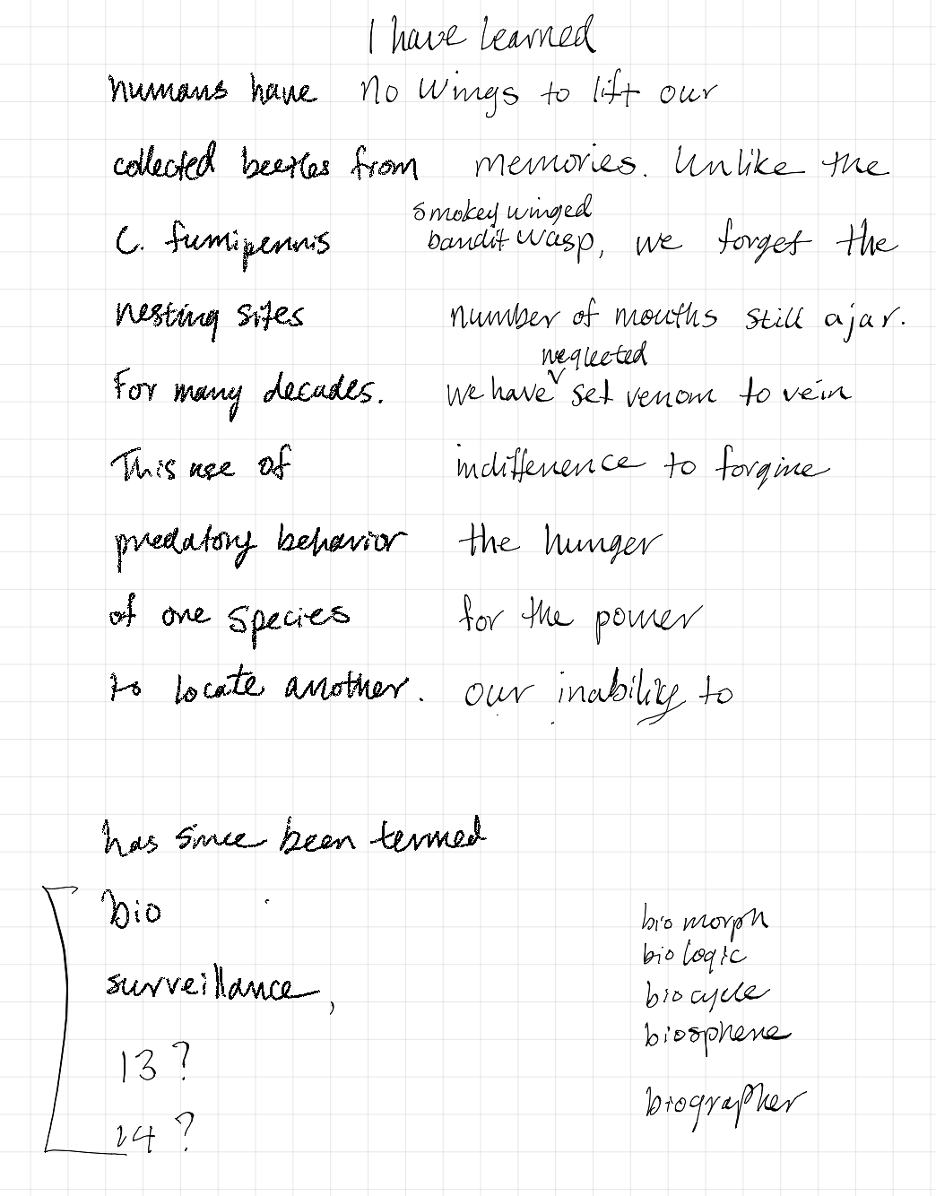 I have learned
humans have no wings to lift our
collected beetles from memories. Unlike the
smokey winged
C. fumipennis bandit wasp, we forget the
nesting sites number of mouths still ajar.
neglected
For many decades. We have set venom to vein
This use of indifference to forgive
predatory behavior the hunger
of one species for the power
to locate another. our inability to
has since been termed
bio
biomorph
biologic
surveillance,
biocycle
biosphere
13?
biographer
14?